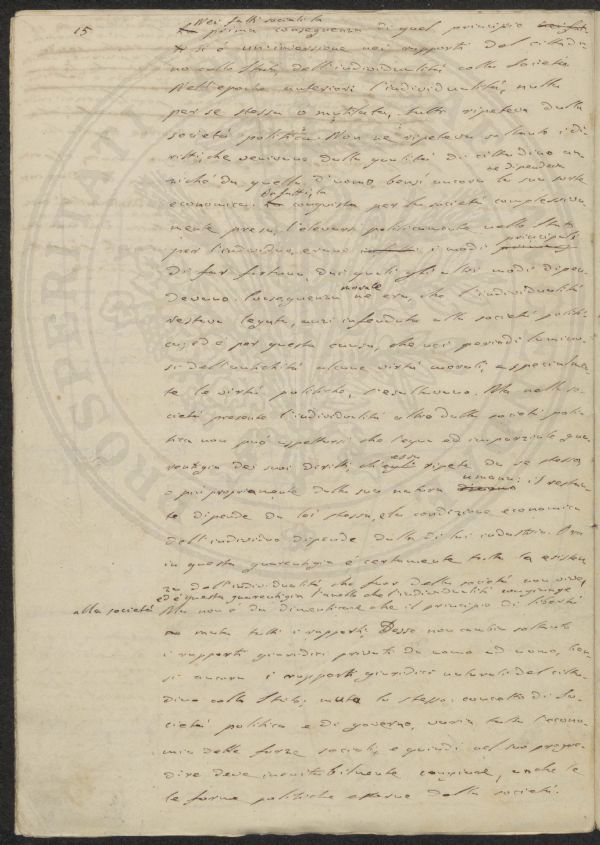 15
Nei fatti sociali la
prima conseguenza di quel principio
si è un'inversione nei rapporti del cittadi-
no collo Stato, dell'individualità colla società.
Nell'epoche anteriori l'individualità, nulla
per se stessa o mutilata, tutto ripeteva dalla
società politica. Non ne ripeteva soltanto i di-
ritti, che venivano dalla qualità di cittadino an-
ne dipendeva
zichè da quella d'uomo, bensì ancora la sua sorte
Difatti, la
economica. conquista per la società complessiva-
mente presa, l'elevarsi politicamente nello Stato
principali
per l'individuo, erano i modi
di far fortuna, dai quali gli altri modi dipen-
morale
devano. Conseguenza ne era, che l'individualità
restava legata, anzi infeudata alla società politi-
ca; ed è per questa causa, che nei periodi lumino-
si dell'antichità alcune virtù morali, e specialmen-
te le virtù politiche, s'esaltavano. Ma nella so-
cietà presente l'individualità altro dalla società poli-
tica non può aspettarsi che l'equa ed imparziale gua-
essa
rentigia dei suoi diritti, che ripete da se stessa,
umana
o più propriamente dalla sua natura : il restan-
te dipende da lei stessa, e la condizione economica
dell'individuo dipende dalla di lui industria. Ora
in questa guarentigia è certamente tutta la esisten-
za dell'individualità che fuor della società non vive,
ed è questa guarentigia l'anello che l'individualità congiunge
alla società Ma non è da dimenticare che il principio di libertà
muta tutti i rapporti. Desso non cambia soltanto
i rapporti giuridici privati da uomo ad uomo, ben-
sì ancora i rapporti giuridici naturali del citta-
dino collo Stato; muta lo stesso concetto di so-
cietà politica e di governo, varia tutta l'econo-
mia delle forze sociali, e quindi nel suo progre-
dire deve inevitabilmente cangiare, anche le
le forme politiche esterne della società.